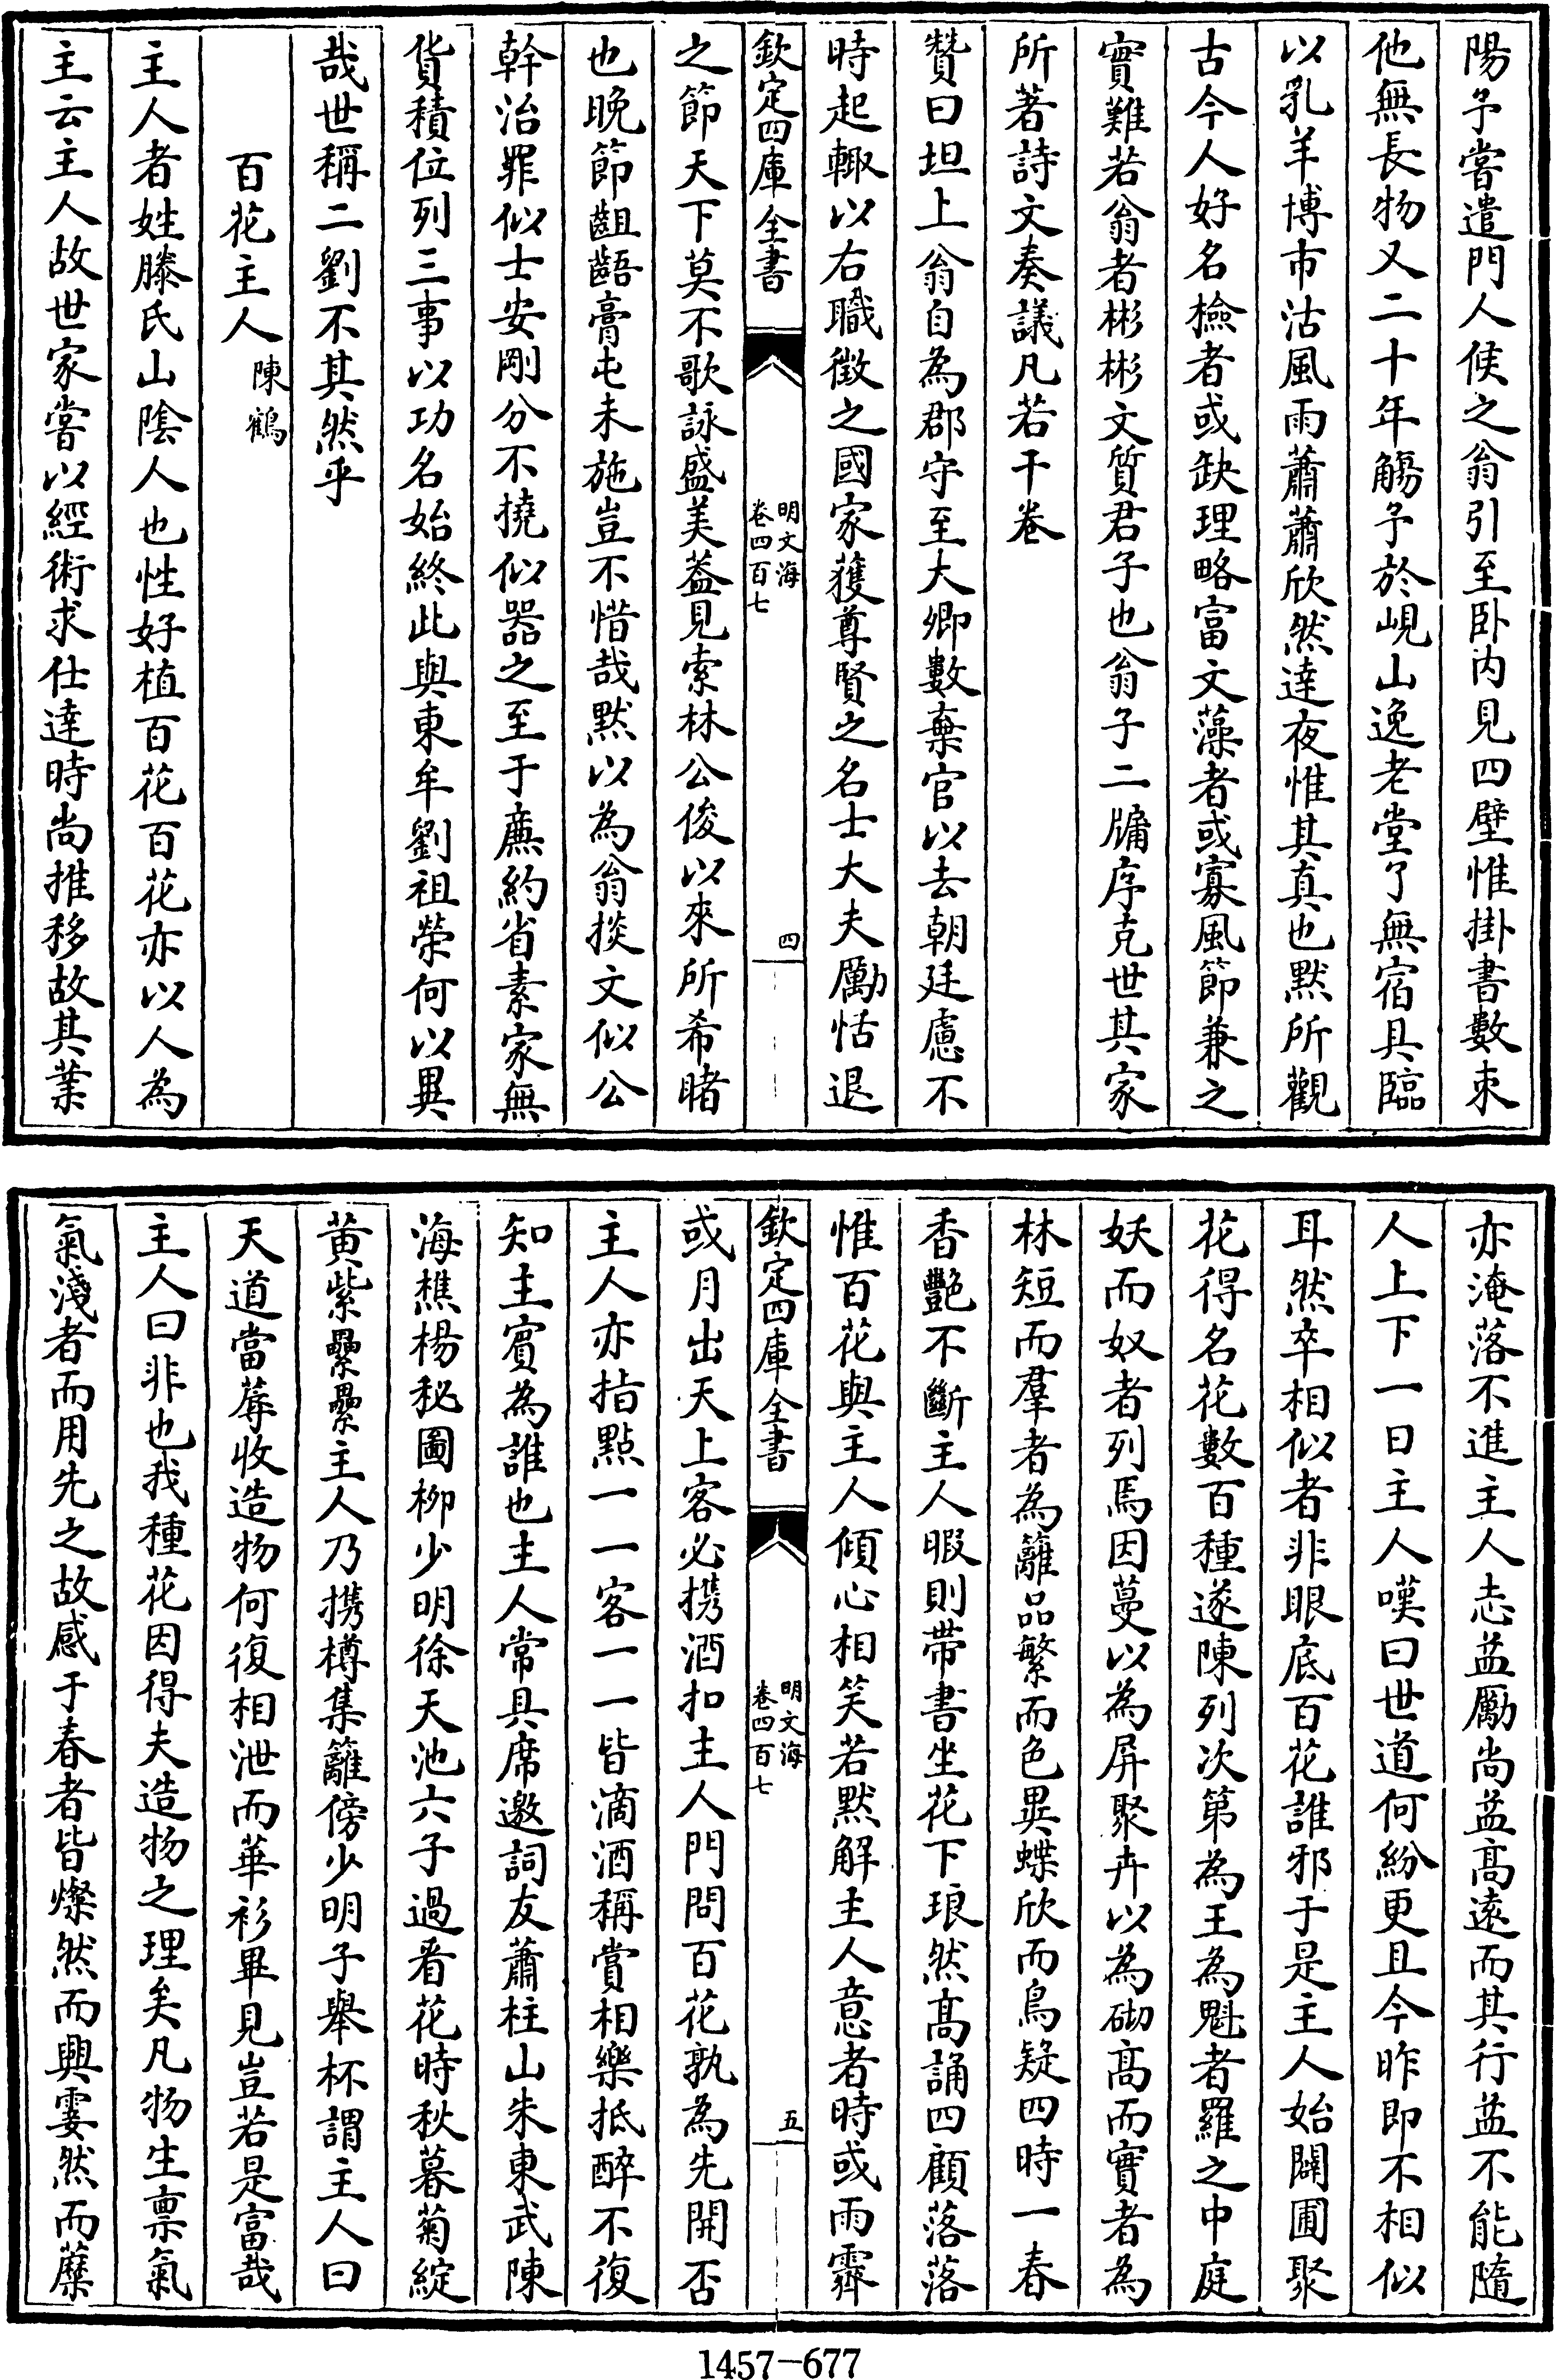 陽予嘗遣門人候之翁引至卧内見四壁惟掛書數束
他無長物又二十年觴予於峴山逸老堂了無宿具臨
以乳羊博市沽風雨蕭蕭欣然達夜惟其真也默所觀
古今人好名檢者或缺理略富文藻者或寡風節兼之
實難若翁者彬彬文質君子也翁子二牗序克世其家
所著詩文奏議凡若干卷
贊曰坦上翁自為郡守至大卿數棄官以去朝廷慮不
時起輙以右職徴之國家獲尊賢之名士大夫勵恬退
欽定四庫全書
明文海
卷四百七
四
之節天下莫不歌詠盛美葢見索林公俊以來所希睹
也晚節齟齬膏屯未施豈不惜哉默以為翁掞文似公
幹治罪似士安剛分不撓似器之至于㢘約省素家無
貨積位列三事以功名始終此與東牟劉祖榮何以異
哉世稱二劉不其然乎
百花主人
陳鶴
主人者姓滕氏山隂人也性好植百花百花亦以人為
主云主人故世家嘗以經術求仕達時尚推移故其業
亦淹落不進主人志益勵尚益髙逺而其行益不能隨
人上下一日主人嘆曰世道何紛更且今昨即不相似
耳然卒相似者非眼底百花誰邪于是主人始闢圃聚
花得名花數百種遂陳列次第為王為魁者羅之中庭
妖而奴者列焉因蔓以為屏聚卉以為砌髙而實者為
林短而羣者為籬品繁而色異蝶欣而鳥疑四時一春
香艷不斷主人暇則帶書坐花下琅然髙誦四顧落落
惟百花與主人傾心相笑若默解主人意者時或雨霽
欽定四庫全書
明文海
卷四百七
五
或月出天上客必携酒扣主人門問百花孰為先開否
主人亦指點一一客一一皆滴酒稱賞相樂抵醉不復
知主賔為誰也主人常具席邀詞友蕭柱山朱東武陳
海樵楊秘圖柳少明徐天池六子過看花時秋暮菊綻
黄紫纍纍主人乃携樽集籬傍少明子舉杯謂主人曰
天道當蓐收造物何復相泄而華衫畢見豈若是富哉
主人曰非也我種花因得夫造物之理矣凡物生禀氣
氣淺者而用先之故感于春者皆燦然而興霎然而蘪
1457—677